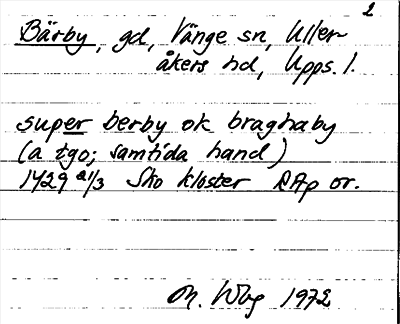 2
Bärby, gd, Vänge sn, Uller-
åkers hd, Upps. l.
super berby ok braghaby
(a tgo; samtida hand)
1429 21/3 Sko kloster RAp or.
M. Wbg 1972